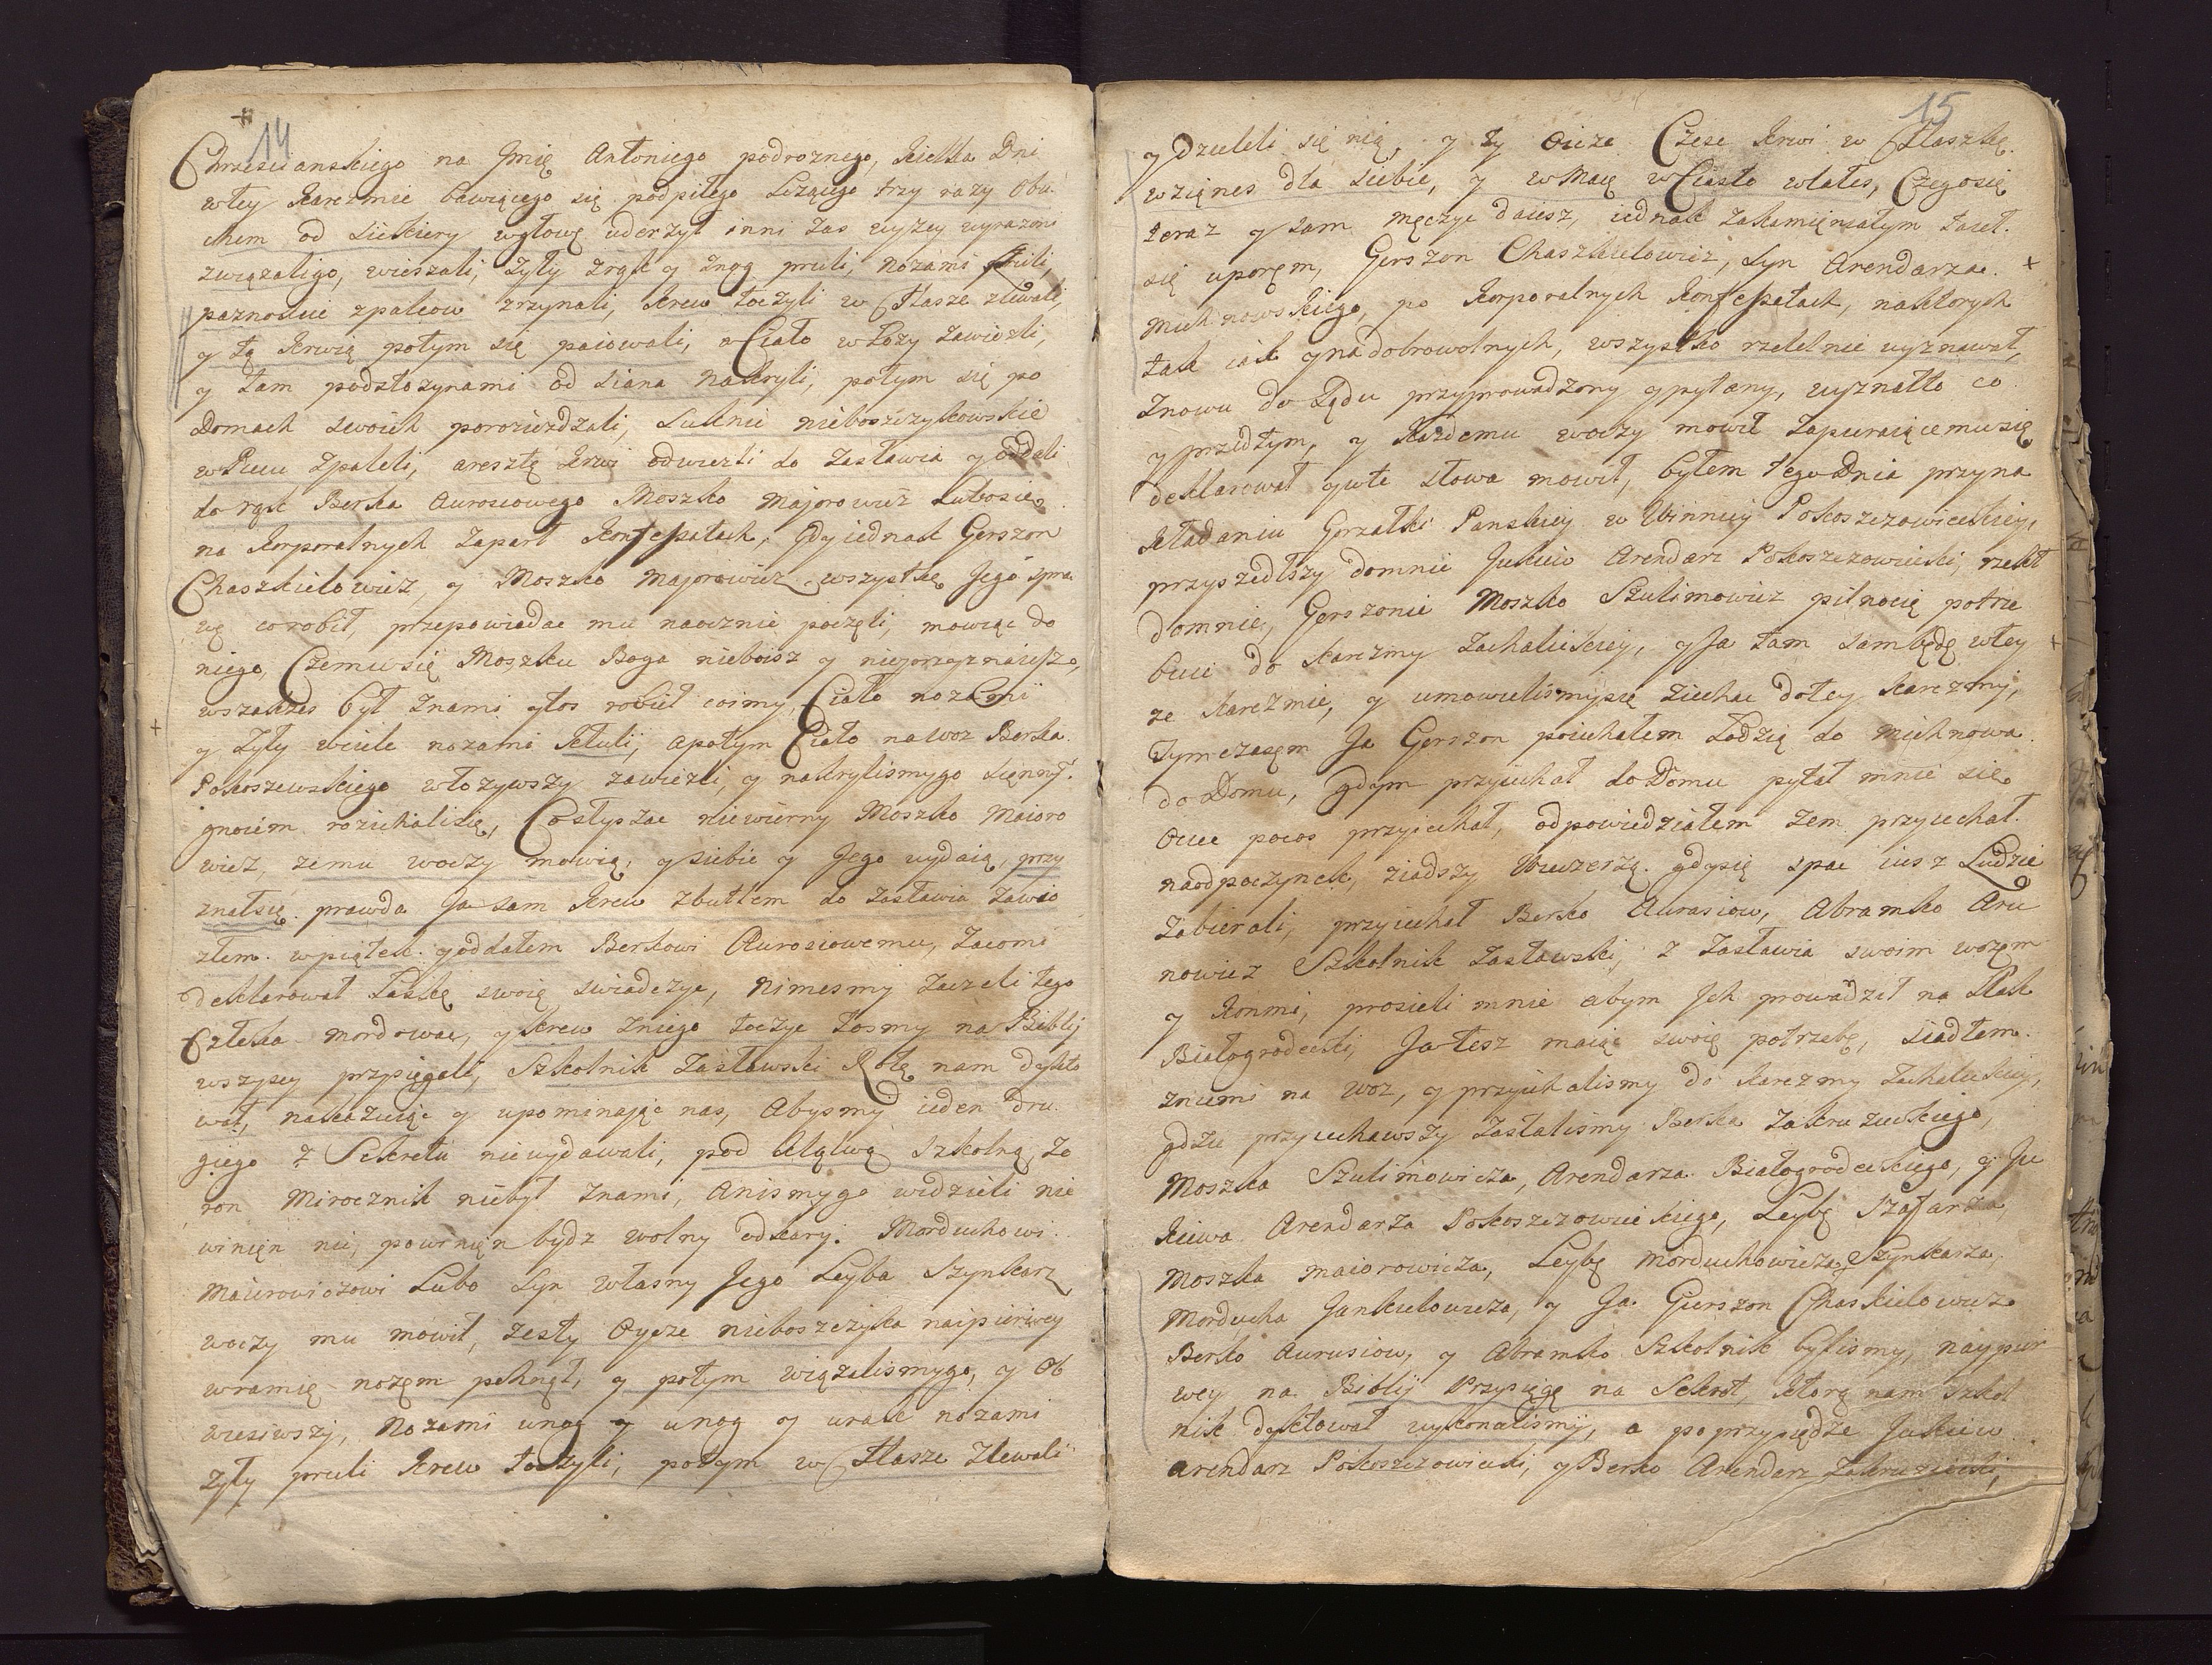 14
Chrzescianskiego na Jmię Antoniego podroznego, kielka Dni
wtey karczmie bawiącego się podpiłego Lezącego trzy razy Obu
chem od siekiery wgłowę uderzył inni zas wyzey wyrazeni
związaligo, wieszali, zyły zrąk y znog pruli, nozami
paznokcie zpalcow zrzynali, krew toczyli w Flasze zlewali,
y tą krwią potym się paiowali, a Ciało w Łozy zawiezli,
y tam podsłozynami od siana nakryli, potym się po
Domach swoich poroziezdzali, Suknie nieboszczykowskie
wPiecu zpaleli, aresztę krwi odwiezli do Zasławia y oddali
do rąk Berka Aurosiowego Moszko Majorowicz Lubosię
na korporalnych zaparł konfessatach, Gdy iednak Gerszon
Chaszkielowicz, y Moszko Majorowicz wszystkę Jego spra
wę co robił, przepowiadac mu naocznie poczęli, mowiąc do
niego, Czemu się Moszku Boga nieboisz y nieprzyznaiesze,
wszakzes był znami ytos robił cosmy, Ciało nozemi
y zyły wciele nozami kłuli, apotym Ciało nawoz Berka
Pokoszewskiego włozywszy zawiezli, y nakrylismygo siennym
gnoiem roziechalisię, Cosłysząc niewierny Moszko Maioro
wicz, zemu woczy mowią, y siebie y Jego wydaią, przy
znałsię. prawda Ja sam krew zbuttem do Zasławia zawio
złem. wpiątek. yoddałem Berkowi Aurosiowemu, zacomi
deklarował Łaskę swoię swiadczyc, nimesmy zaczeli tego
Człeka mordowac, y krew zniego toczyc tosmy na Biblij
wszyscy przysięgali, Szkolnik Zasławski Rotę nam dykto
wał, nakazuiąc y upominając nas, Abysmy ieden dru
giego z Sekretu niewydawali, pod klątwą szkolną, Ze
ron Mirocznik niebył znami, Anismygo widzieli nie
winięn nic, powinięn bydz wolny odkary. Morduchowi
Maierowiczowi Lubo Syn własny Jego Leyba Szynkarz
woczy mu mowił, zesty Oycze nieboszczyka naipierwey
wramię nozęm pchnął, y potym wiązalismygo, y Ob
wiesiwszy, Nozami unog y unog y urąk nozami
zyły pruli krew toczyli, potym w Flasze zlewali
15
y dzieleli się nią, y ty Oicze Częsc krwi w Flaszkę
wziąnes dla siebie, y wMacę wCiasto wlałes, Czegosię
teraz y sam męczyc daiesz, iednak zakamięniałym zaciął
się uporęm, Gerszon Chaszkielowicz, Syn Arendarza
Michnowskiego, po korporalnych konfessatach, naktorych
tak iak ynadobrowolnych, wszystko rzetelnie wyznawał,
znowu do Sądu przyprowadzony ypytany, wyznałto co
y przedtym, y kazdemu woczy mowił zapieraiącemusię
deklarował ywte słowa mowił, byłem tegoDnia przyna
kładaniu Gorzałki Panskiey w Winnicy Pokoszczowieckiey,
przyszedłszy domnie Jukiew Arendarz Pokoszczowiecki, rzekł
domnie, Gerszonie Moszko Szulimowicz pilnocię potrze
buie do karczmy Zachalickiey, yJa tam sambędę wtey
ze karczmie, y umowielismysię ziechac dotey karczmy,
Tymczasęm Ja Gerszon poiechałem Łodzią do Michnowa
do Domu, gdym przyiechał doDomu pytał mnie się
Ociec pocos przyiechał, odpowiedziałem zem przyiechał
naodpoczynek, ziadszy Wieczerzą. gdysię spac iusz Ludzie
zabierali, przyiechał Berko Aurasiow, Abramko Aru
nowicz Szkolnik Zasławski, z Zasławia swoim wozęm
y konmi, prosieli mnie abym Jch prowadził na Szlak
Białogrodecki, Jatesz maiąc swoię potrzebę, siadłem
zniemi na woz, y przyiechalismy do karczmy Zachalickiey,
gdzie przyiechawszy zastalismy Berka Zakruzieckiego,
Moszka Szulimowicza, Arendarza Białogrodeckiego, y Ju
kiewa Arendarza Pokoszczowieckiego, Leybę Szafarza
Moszka maiorowicza, Leybę Morduchowicza Szynkarza,
Morducha Jankielowicza, y Ja Gierszon Chaskielowicz
Berko Aurusiow, y Abramko Szkolnik bylismy, naypier
wey na Biblij Przysięgę na Sekret, ktorą nam szkol
nik dyktował wykonalismy, a poprzysiędze Jukiew
Arendarz Pokoszczowiecki, yBerko Arendarz Zakruziecki,